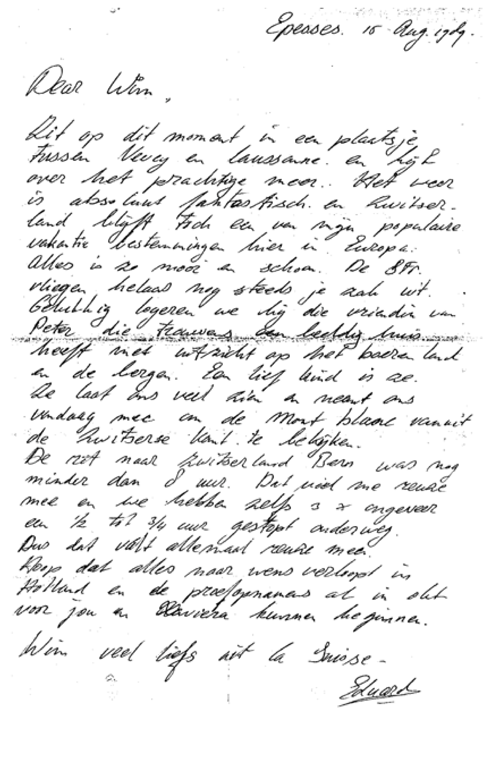 Epesses. 15 Aug. 1989.
Dear Wim,
Zit op dit moment in een plaatsje
tussen Vevey en Laussanne. en kijk
over het prachtige meer.. Het weer
is absoluut fantastisch. en Zwitser-
land blijft toch een van mijn populaire
vakantie bestemmingen hier in Europa.
Alles is zo mooi en schoon. De SFr.
vliegen helaas nog steeds je zak uit.
Gelukkig logeren we bij die vriendin van
Peter die trouwens een beeldig huis
heeft met uitzicht op het boeren land
en de bergen. Een lief kind is ze.
Ze laat ons veel zien en neemt ons
vandaag mee om de Mont blanc vanuit
de Zwitserse kant te bekijken.
De rit naar Zwitserland Bern was nog
minder dan 8 uur. Dat viel me reuze
mee en we hebben zelfs 3 x ongeveer
een 1/2 tot 3/4 uur gestopt onderweg.
Dus dat valt allemaal reuze mee.
Hoop dat alles naar wens verloopt in
Holland en de proefopnamens al in okt
voor jou en Xaviera kunnen beginnen.
Wim veel liefs uit la Suisse -
Eduard